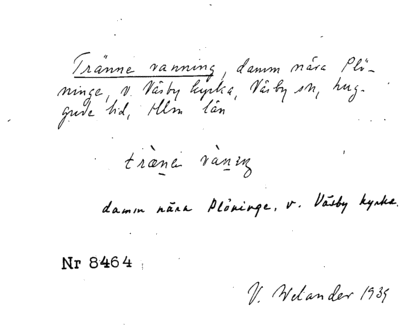 Tränne vanning, damm nära Plö-
ninge, v. Väsby kyrka, Väsby sn, Lug-
gude hd, Mlm län
træ̱na vàṉiŋ
damm nära Plöninge, v. Väsby kyrka.
Nr 8464
V. Welander 1939